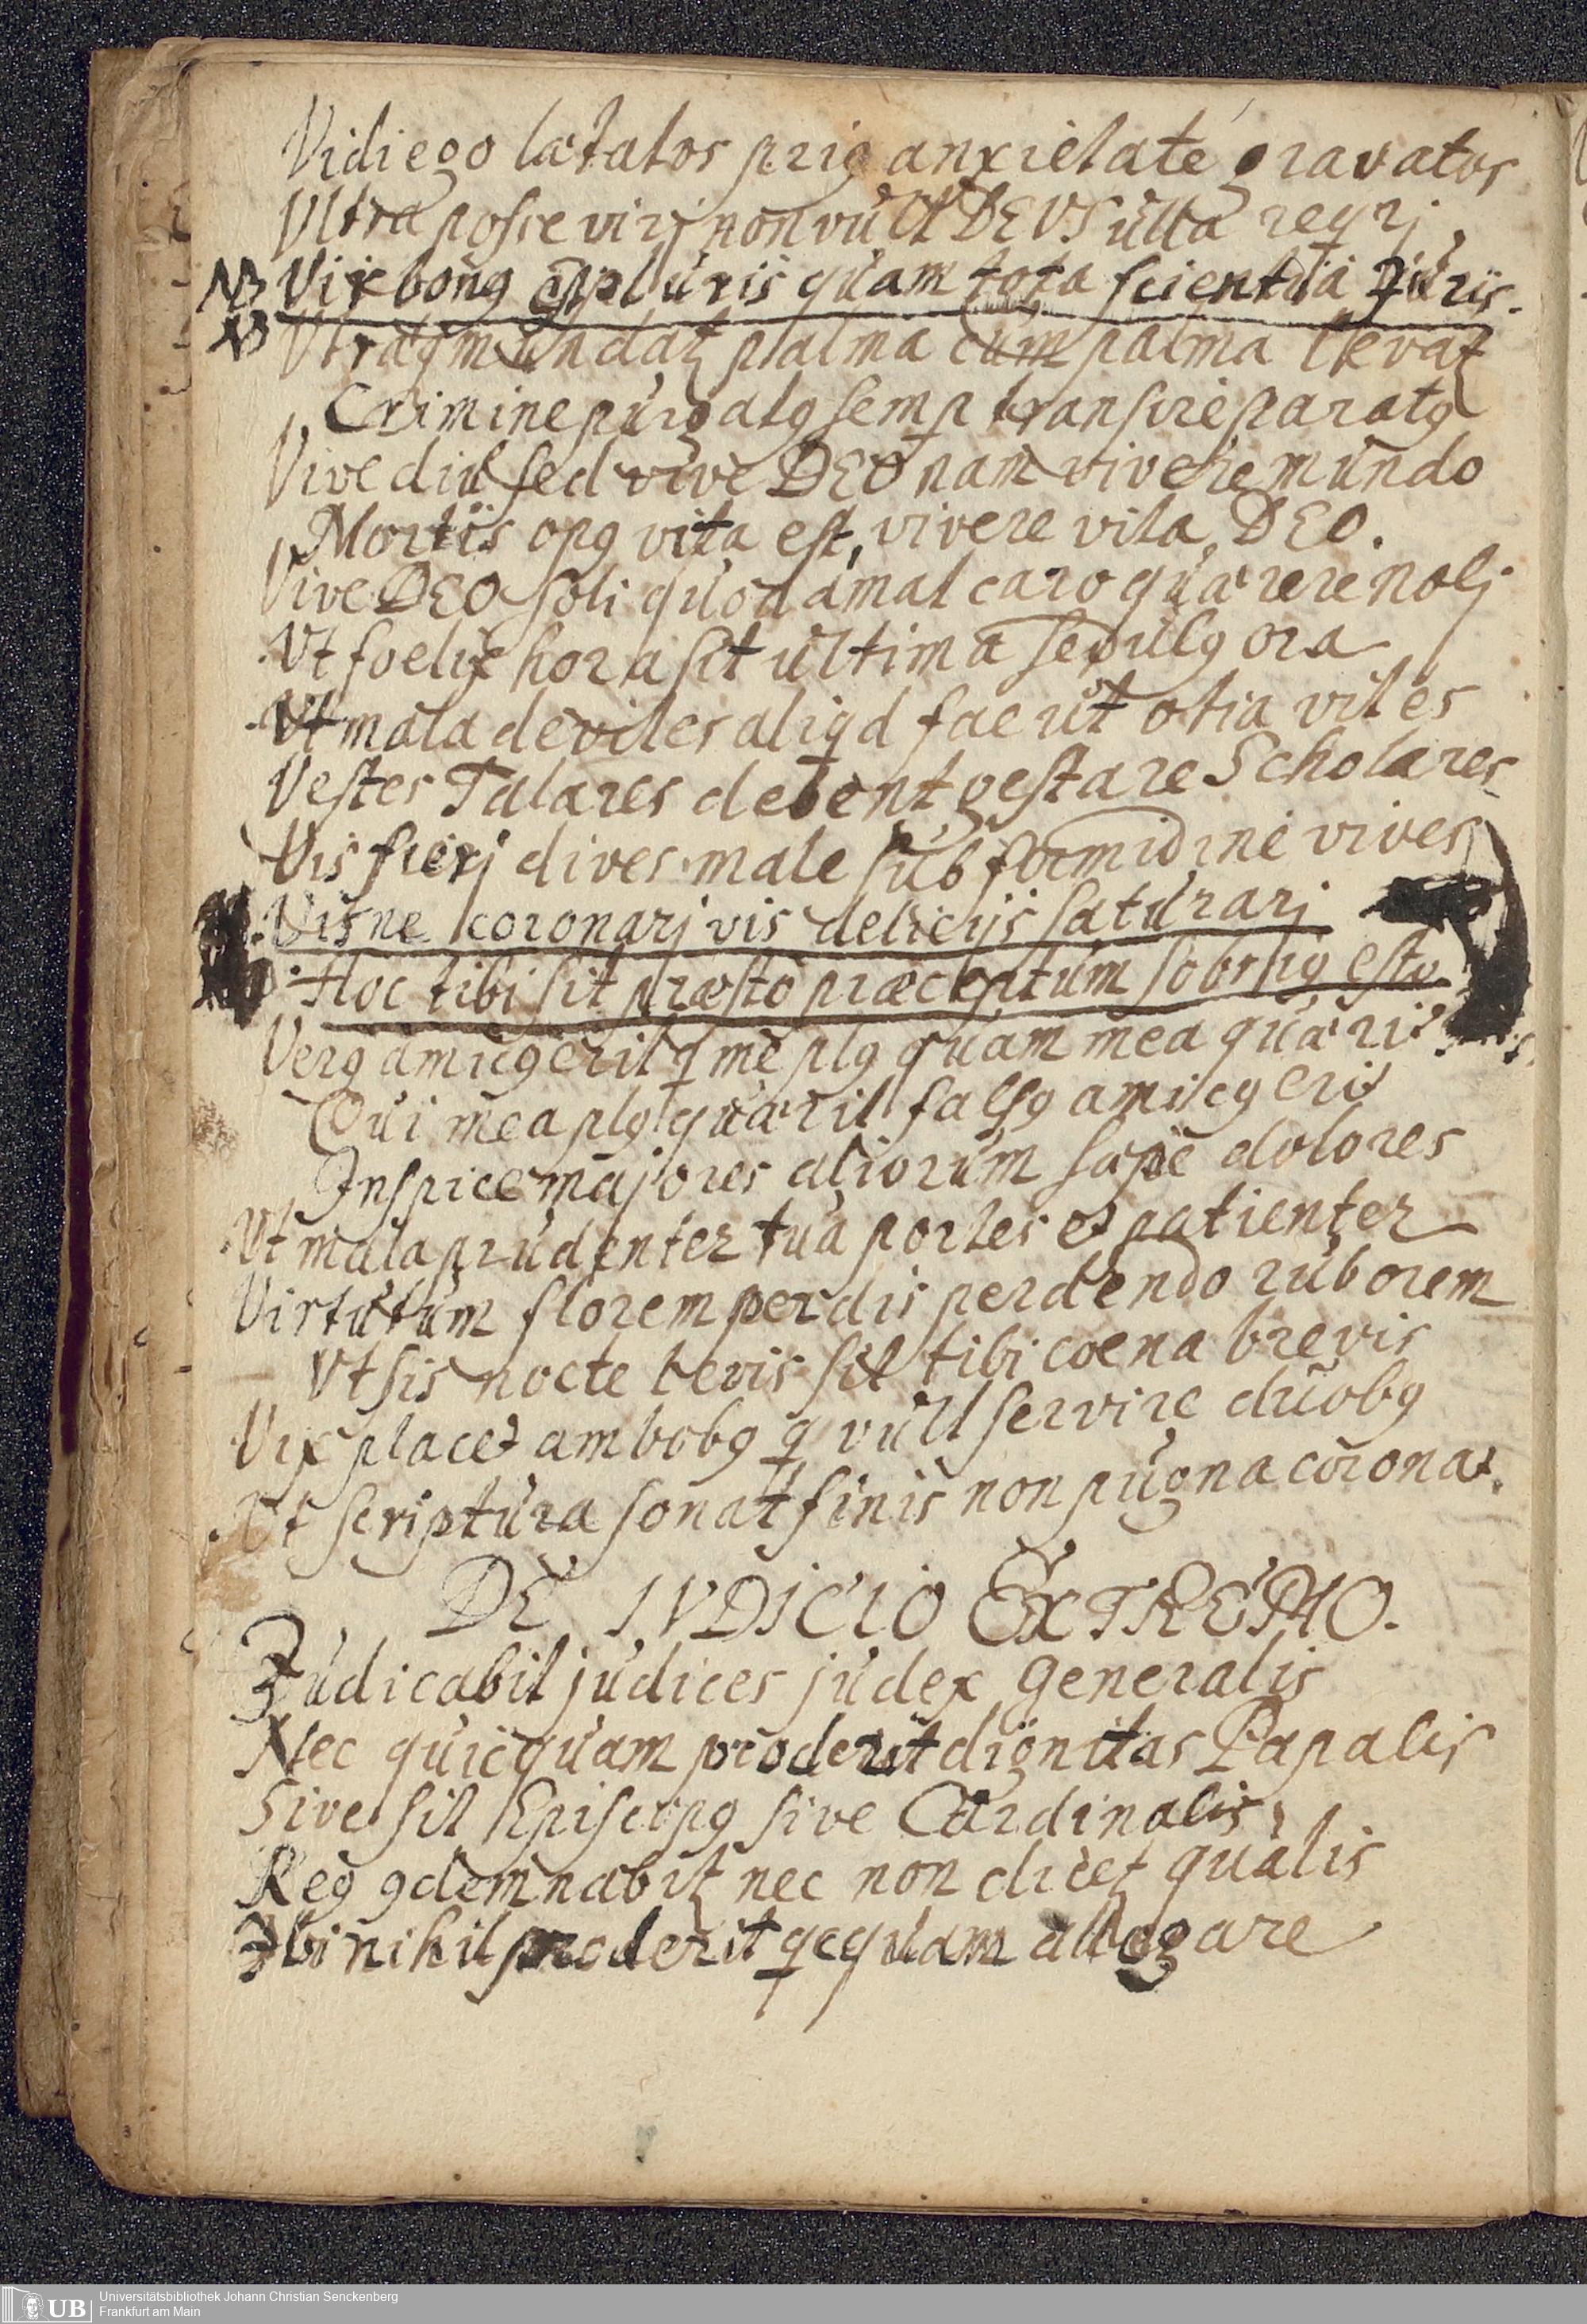 Vidi ego lætatos priꝰ anxietate gravatos
Ultra posse virj non vult DEUS ulla reqrj.
NB Vir bonꝰ est pluris quam tota scientia Juris.
NB Utraqꝫ mundatꝛ palma cum palma levatꝛ
Crimine purgatꝰ semꝑ transire paratꝰ
Vive diu sed vive DEO nam vivere mundo
Mortis opꝰ vita est, vivere vita DEO.
Vive DEO soli quod amat caro quærere nolj
Vt foelix hora sit ultima sedulꝰ ora
Vt mala devites aliqd fac ut otia vites
Vestes Talares debent gestare Scholares
Vis fierj dives male sub formidine vives
Visne coronarj vis delicijs saturarj
Hoc tibi sit præsto præceptum sobriꝰ esto
Verꝰ amicꝰ erit q me plꝰ quam mea quærit
Qui mea plꝰ quærit falsꝰ amicꝰ erit
Inspice majores aliorum sæpe dolores
Vt mala prudenter tua portes et patienter
Virtutum florem perdis perdendo ruborem
Vt sis nocte levis sit tibi coena brevis
Vix placet ambobꝰ q vult servire duobꝰ
Vt scriptura sonat finis non pugna coronat.
DE IVDICIO EXTREMO.
Judicabit judices judex generalis
Nec quicquam proderit dignitas Papalis
Sive sit Episcopꝰ sive Cardinalis
Reꝰ ꝯdemnabitꝛ nec non dicet qualis
Ibi nihil proderit qcquam allegare
Universitätsbibliothek Johann Christian Senckenberg
Frankfurt am Main
UB